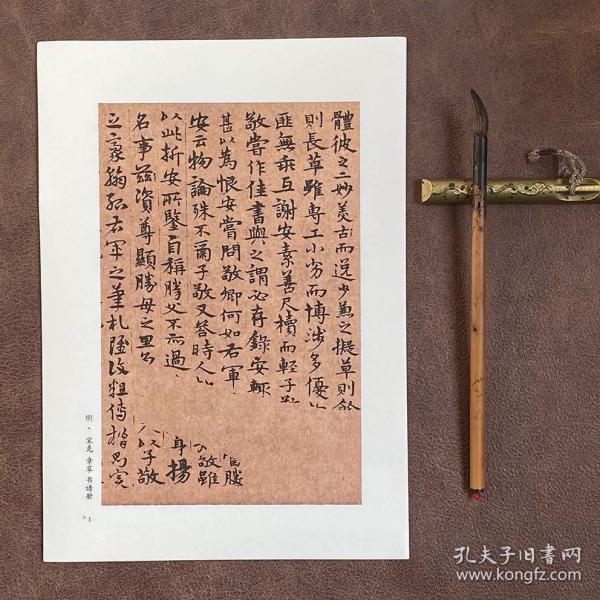 體彼之二妙美古而逸少兼之擬草則餘
則長草雖專工小劣而博涉多優以
匪無乖互謝安素善尺牘而輕子敬
敬嘗作佳書與之謂必存錄安輒
甚以為恨安嘗問敬卿何如右軍
安云物論殊不爾子敬又答時人
以此折安所鑒自稱勝父不亦過
名事茲資尊顯勝母之里
之豪翰紹右軍之筆札雖復粗傳楷則實
勝
敬雖
身揚
以子敬
明·宋克 章草 书谱册
>1
孔夫子旧书网
www.kongfz.com